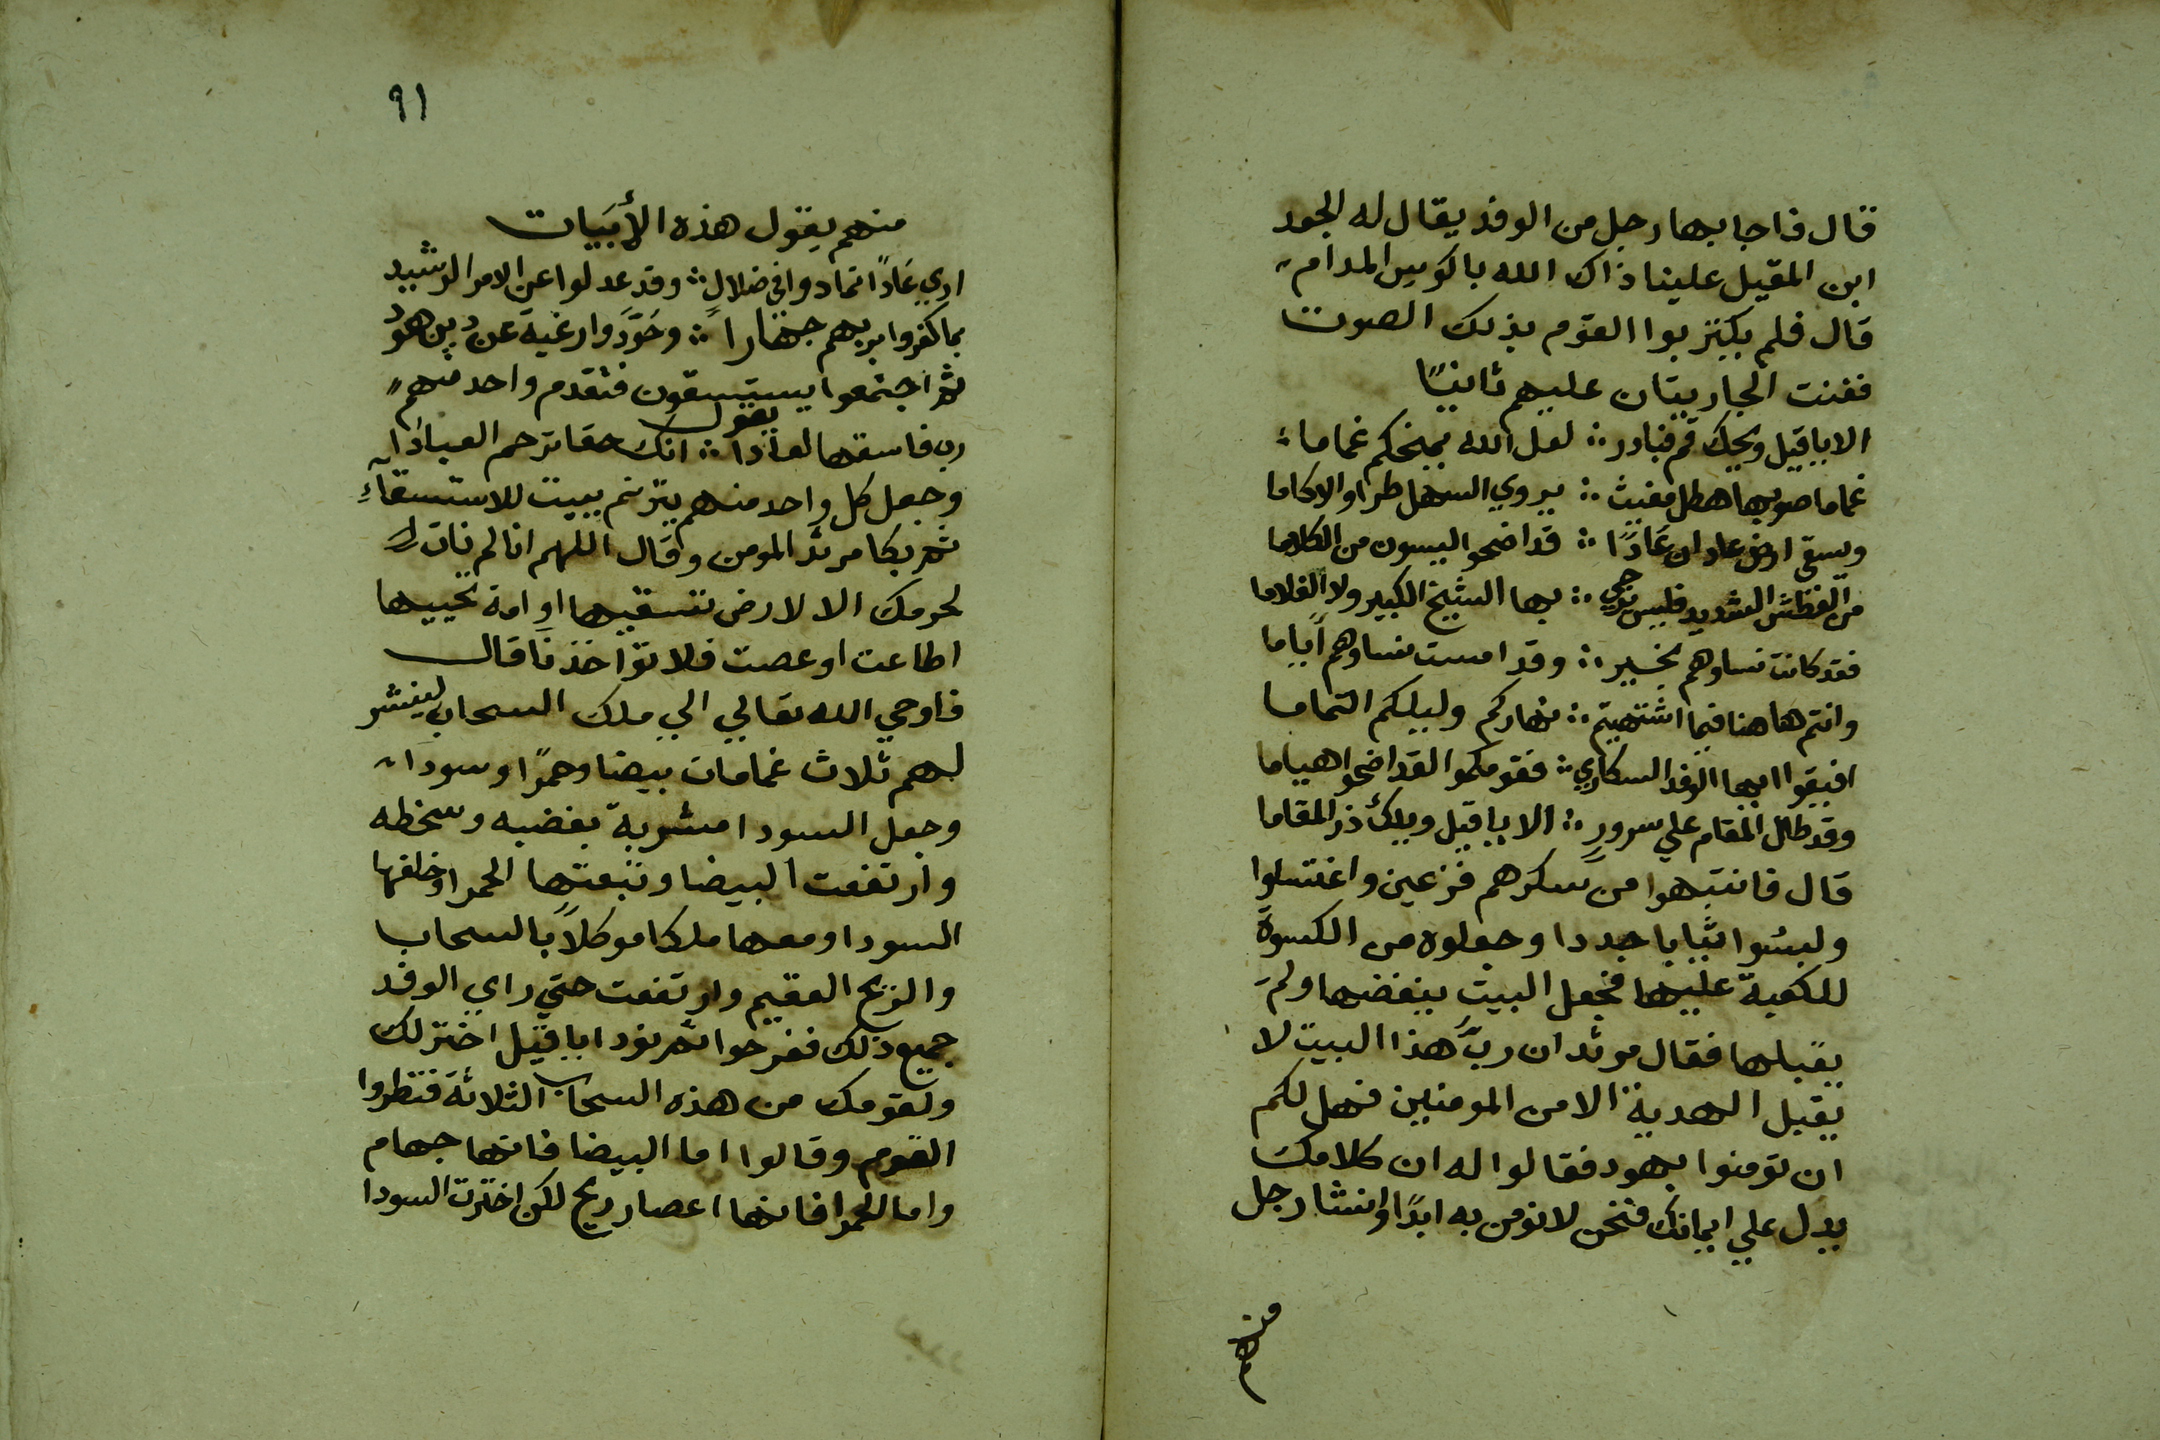 قال فاجابها رجل من الوفد يقال له الجعد
ابن المقيل علينا ذاك الله بالكوس المدام
قال فلم يكتربوا القوم بذلك الصوت
فغنت الجاريتان عليهم ثانيًا
الا يا قيل ويحك قم فبادر ؞ لعل الله يمنحكم غماما
غماما صوبها هطل مغيث ؞ يروي السهل طرا والاكاما
ويسقي ارض عاد ان عادًا ؞ قد اضحوا ليسون من الكلاما
من العطش الشديد فليس يرجي ؞ بها الشيخ الكبير ولا الغلاما
فقد كانت نساوهم بخير ؞ وقد امست نساوهم اياما
وانتم هاهنا فيما اشتهيتم ؞ نهاركم وليلكم التماما
افيقوا ايها الوفد السكاري ؞ فقومكموا لقد اضحوا هياما
وقد طال المقام علي سرور ؞ الا يا قيل ويلك ذر المقاما
قال فانتبهوا من سكرهم فزعين واغتسلوا
ولبسوا ثيابا جددا وجعلوه من الكسوة
للكعبة عليها فجعل البيت ينفضها ولم
يقبلها فقال مرثد ان ربَّ هذا البيت لا
يقبل الهدية الا من المومنين فهل لكم
ان تومنوا بهود فقالوا له ان كلامك
يدل علي ايمانك فنحن لا نومن به ابدًا وانشا رجل
منهم
٩١
منهم يقول هذه الأبيات
اري عادًا تمادوا في ضلال ؞ وقد عدلوا عن الامر الرشيد
بما كفروا بربهم جهارا ؞ وحَوَّدوا رغبة عن دين هود
ثم اجتمعوا يستسقون فتقدم واحد منهم
يقول
رب فاسقها لعادا ؞ انك حقا ترحم العبادا
وجعل كل واحد منهم يترنم ببيت للاستسقاء
ثم بكا مرثد المومن وقال اللهم انا لم نات ل
لحرمك الا لارض تسقيها او امة تحييها
اطاعت او عصت فلا تؤاخذنا قال
فاوحي الله تعالي الي ملك السحاب لينشر
لهم ثلاث غمامات بيضا وحمرًا وسودا
وجعل السودا مشربة بغضبه وسخطه
وارتفعت البيضا وتبعتها الحمرا وخلفها
السودا ومعها ملكا موكلاً بالسحاب
والريح العقيم وارتفعت حتي راي الوفد
جميع ذلك ففرحوا ثم نودا يا قيل اختر لك
ولقومك من هذه السحاب الثلاثة فنظروا
القوم وقالوا اما البيضا فانها جهام
واما الحمرا فانها اعصار ريح لكن اخترت السودا